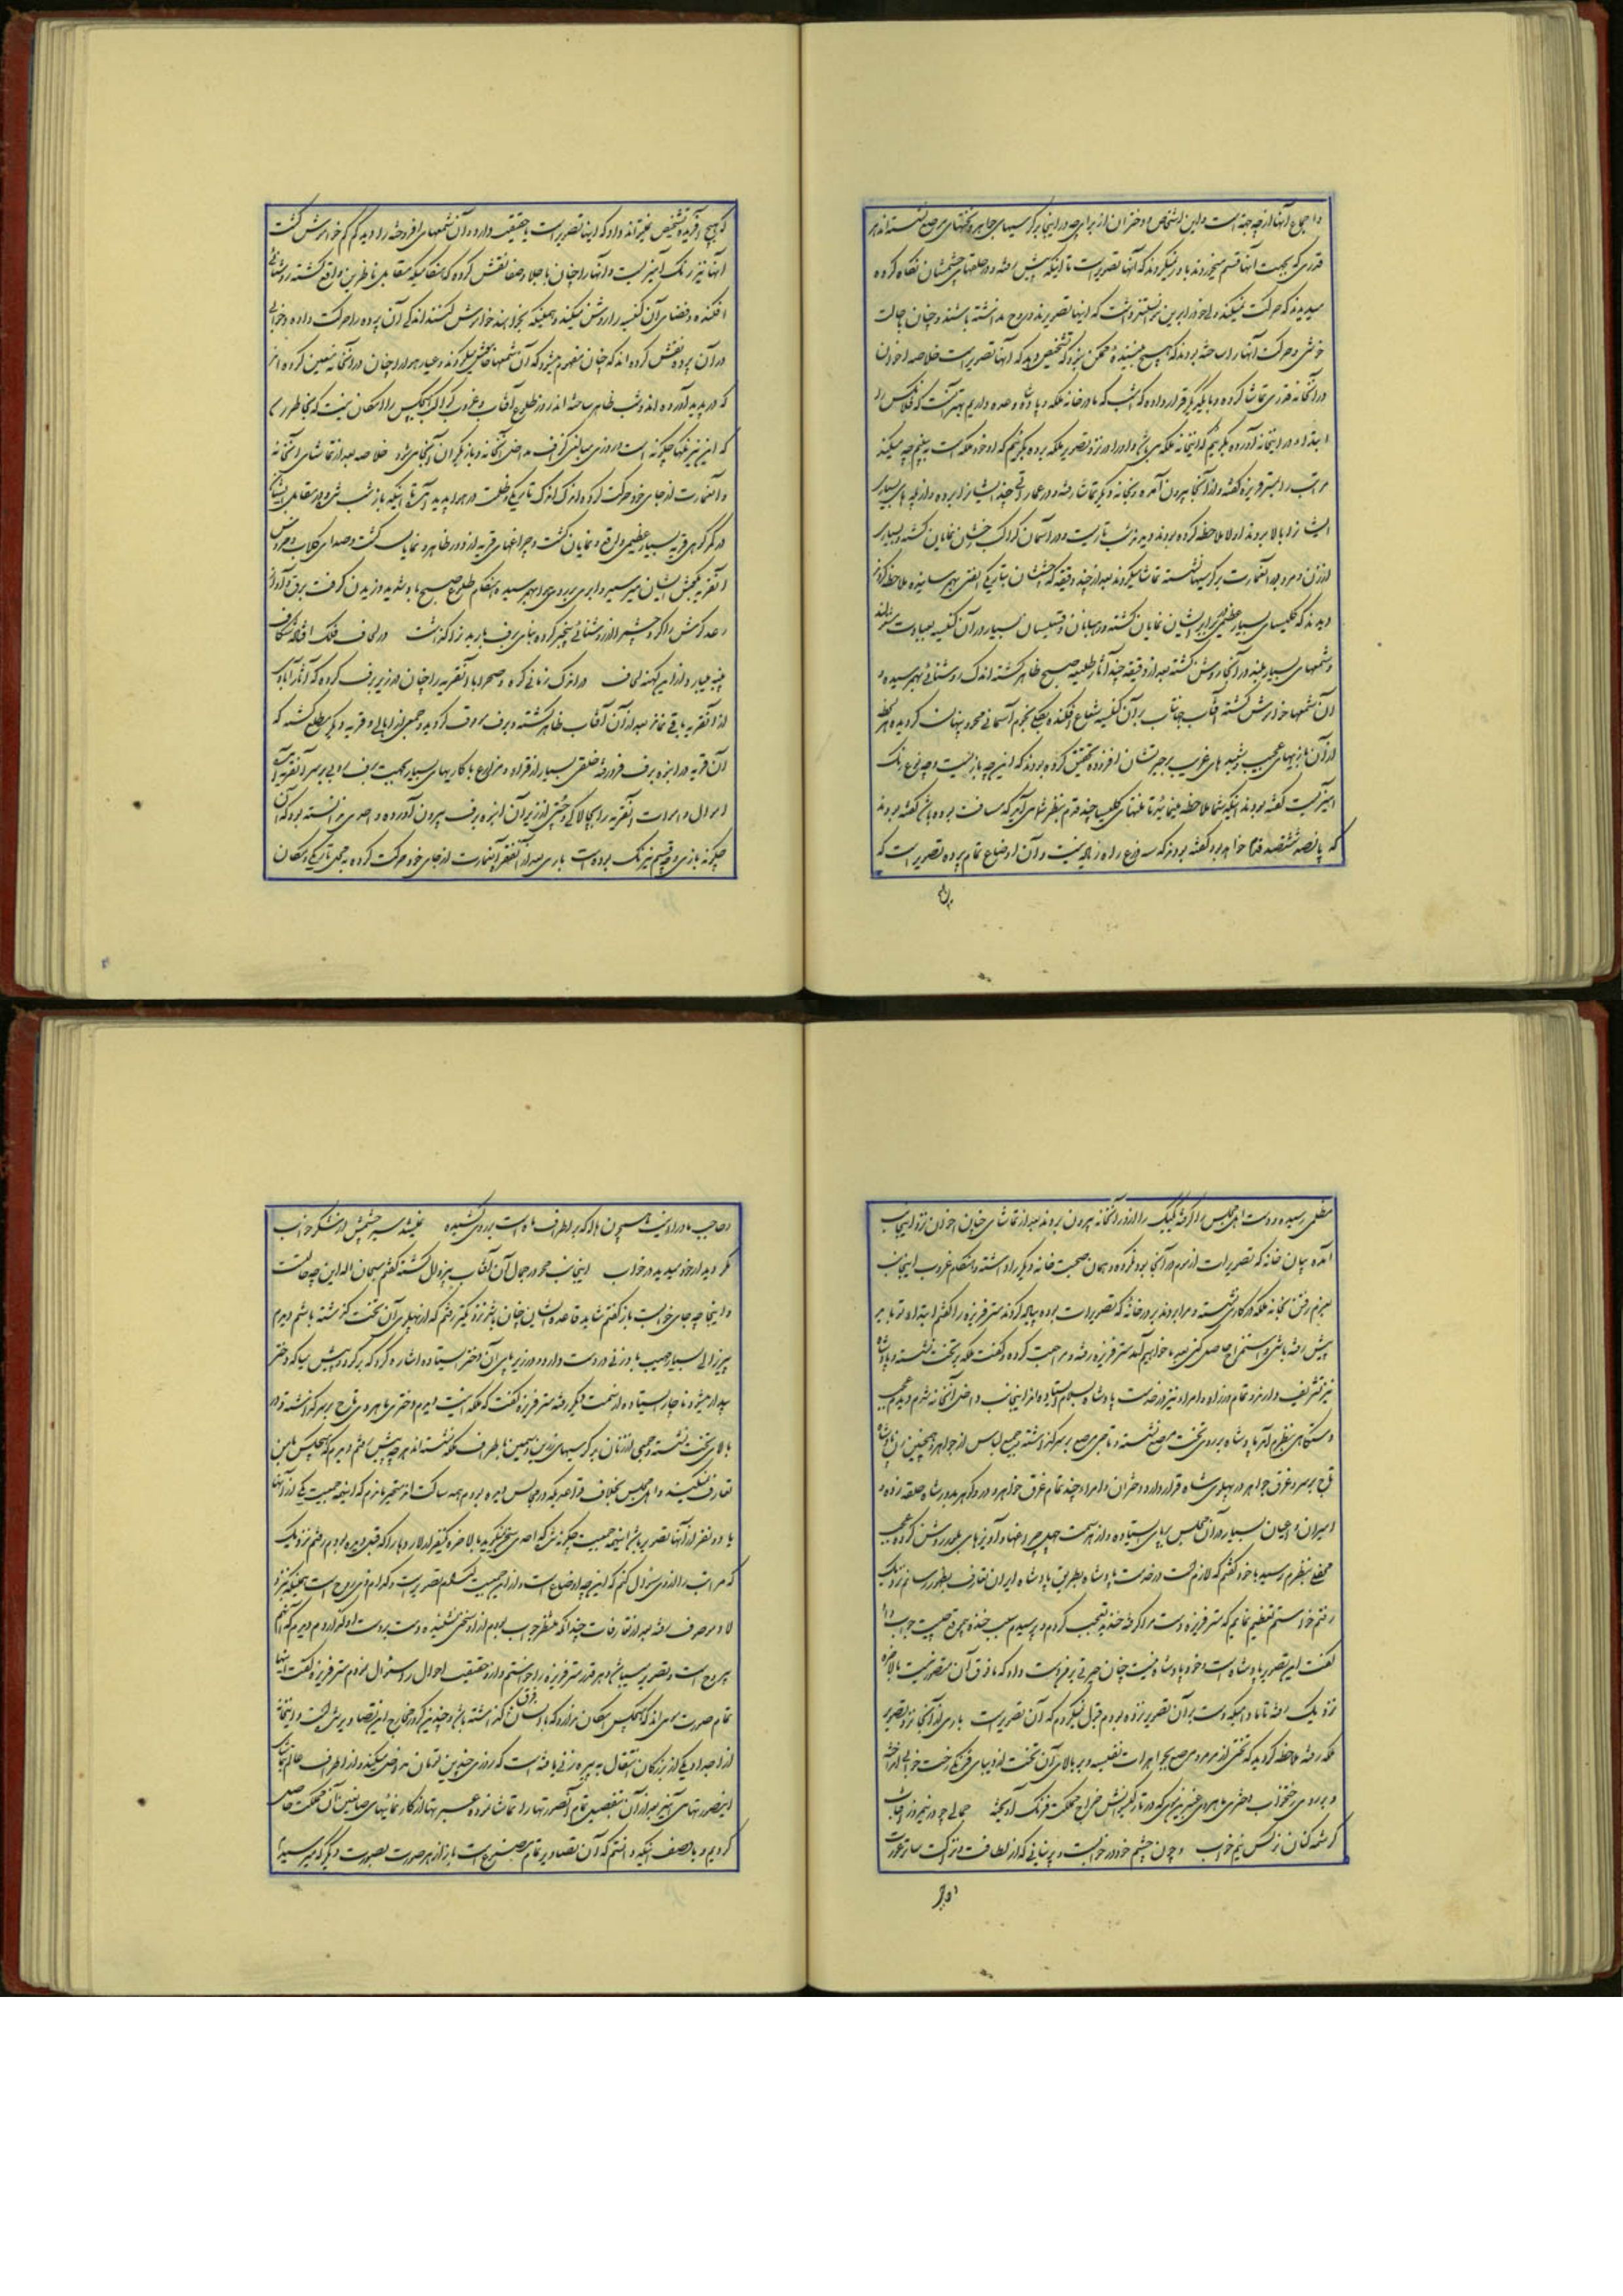 و اجماع آنها از چه جهة است و این اشخاص و دختران از برای چه در اینجا بر کرسیهای جواهر و تختهای مرصع نشسته‌اند هر
قدری که بجهت آنها قسم میخوردند باور نمیکردند که آنها تصویر است تا اینکه پیش رفته و در حلقهای چشمشان نگاه کرده
میدیدند که حرکت نمیکند ولی خود را برین نمیتوانستند داشت که اینها تصویرند و روح نداشته باشند و چنان بحالت
خوش و حرکت آنها را ساخته بودند که هیچ بیننده ممکن نبود که تشخیص دهد که آنها تصویر است خلاصه اخوان
در آنخانه قدری تماشا کرده و با یکدیگر قرار داده که امشب که ما در خانه ملکه و پادشاه وعده داریم بهتر آنست که فلانکس را
ابتداء در اینخانه آورده بگوئیم که اینخانه ملکه می‌باشد و او را در نزد تصویر ملکه برده بگوئیم که او خود ملکه است ببینیم چه میکند
مراتب را بمستر فریزه گفته و از آنجا بیرون آمده و بخانه دیگر بتماشا رفته و در عمارتی چند ایشانرا برده و از پله‌های بسیار
ایشانرا بالا بردند اولا ملاحظه کرده بودند دیدند شب تاریست و در آسمان کواکب درخشان نمایان گشته و بسیار
از زن و مرد در آنعمارت بر کرسیها نشسته تماشا میکردند بعد از چند دقیقه که چشمشان بتاریکی الفتی بهم رسانیده ملاحظه کردند
دیدند که کلیسای بسیار عظیمی در برابر ایشان نمایان گشته و رهبانان و قسیسان بسیار در آن کنیسه بعبادت مشغولند
و شمعهای بسیار بلند در آنجا روشن گشته بعد از دقیقه چند آثار طلیعه صبح ظاهر گشته اندک روشنائی بهم رسیده و
آن شمعها خاموش گشته آفتاب جهانتاب بر آن کنیسه شعاع افکنده بکلی نجوم آسمانی محو و پنهان گردیده هر لحظه
از آن بازیهای عجیب و شعبده‌های غریب بر حیرتشان افزوده تحقیق کرده بودند که این چه بازیست و چه نوع رنگ
آمیزیست گفته بودند اینکه شما ملاحظه مینمائید تا منتهای کلیسیا چند قدم بنظر شما می‌آید که مسافت بوده باشد گفته بودند
که پانصد ششصد قدم خواهد بود گفته بودند که سه ذرع راه زیاده نیست و آن اوضاع تمام پرده تصویر است که
که هیچ آفریده تشخیص نمیتواند داد که اینها تصویر است یا حقیقت دارد و آن شمعهای افروخته را دیدیم کم کم خاموش گشت
آنها نیز رنگ آمیز یست و آنها را چنان با جلا و صفا نقش کرده که هنگامیکه مقابل ناظرین واقع گشته روشنائی
افکنده و فضای آن کنیسه را روشن میکند و همینکه بخواهند خاموش کنند اندکی آن پرده را حرکت داده و خوابی
در آن پرده نقش کرده‌اند که چنان مفهوم میشود که آن شمعها خاموش میگردند و عیار هر امر را چنان در آنخانه معین کرده‌اند
که در پدید آوردن روز و شب ظاهر ساخته‌اند روز طلوع آفتاب و غروب کواکب هیچکس را امکان نیست که بخاطر رسد
که این نیز منها چگونه است امروزی مبالغی گزاف مداخل آنخانه و بازیگران آنجا می‌شود خلاصه بعد از تماشای آنخانه
و آنعمارت از جای خود حرکت کرده اندک اندک تاریکی و ظلمت در هوا پدید آمد تا اینکه باز شب شد و در مقابل ایشان
در کمر کوهی قریه بسیار عظیمی واقع و نمایان گشت و چراغهای قریه از دور ظاهر و نمایان گشت و صدای کلاب و خروس
آنقریه بگوش ایشان میرسید و ابری بر روی هوا بهم رسیده هنگام طلوع صبح باد شدید وزیدن گرفت برق و آواز
رعد گوش را کر و چشم را از روشنائی خیره کرده بنای برف باریدن گذاشت در لحاف فلک افتاد شکاف
پنبه میبارد از این کهنه لحاف در اندک زمانی کوه و صحرا با آنقریه را چنان در زیر برف کرده که آثار آبادی
از آنقریه باقی نماند بعد از آن آفتاب ظاهر گشته و برف موقوف گردید و جمعی از اهالی دو قریه دیگر مطلع گشته که
آن قریه در انبوه برف فرو رفته خلقی بسیار از قراء و مزارع با کاریهای بسیار بجهت برف روبی بر سر آنقریه آمده
اموال و اموات آنقریه را بچالاکی و چستی از زیر آن انبوه برف بیرون آورده و احدی ندانسته بود که آن
چگونه بازی و چه قسم نیرنگ بوده است باری بعد از آن نفر آنعمارت از جای خود حرکت کرده به محل تاریکی و مکان
مظلمی رسیده و دست اهل مجلس را گرفته یکیک را از در آنخانه بیرون بردند بعد از تماشای چنان اخوان نزد اینجانب
آمده بیان خانه که تصویرات از موم در آنجا بود نکرده و همان صحبت خانه دیگر را داشته و هنگام غروب اینجانب
بعزم رفتن بخانه ملکه در کالسکه نشسته و مرا بردند بدر خانه که تصویرات بوده پیاده کردند مستر فریزه را گفتم ابتداء تو باید
پیش رفته باشی و استمزاج حاصل کنی بعد ما خواهیم آمد مستر فریزه رفته و مراجعت کرده و گفت ملکه بر تخت نشسته و پادشاه
نیز تشریف دارند و تمام وزراء و امراء نیز در خدمت پادشاه بسلام ایستاده‌اند اینجانب داخل آنخانه شدم دیدم عجب
دستگاهی بنظرم آمد پادشاه بر روی تخت مرصع نشسته و تاجی مرصع بر سر گذاشته و جمیع لباس از جواهر و همچنین زن پادشاه
تاج بر سر و غرق جواهر در پهلوی شاه قرار دارد و دختران و امراء چند تمام غرق جواهر و در و گهر بدور شاه حلقه زده و
امیران و اعیان بسیار در آن مجلس برپای ایستاده و از هر سمت چهلچراغها و آویزهای بلور روشن کرده عجب
محفلی بنظرم رسید با خود گفتم که لازم است در خدمت پادشاه بطریق پادشاه ایران تعارف بظهور رسانم نزدیک
رفتم خواستم تعظیم نمایم که مستر فریزه دست مرا گرفته خندید تعجب کردم و پرسیدم سبب خنده بیموقع چیست جواب داد
گفت این تصویر پادشاه است و خود پادشاه نیست چنان حیرتی بر من دست داد که ما فوق آن متصور نیست بالاخره
نزدیک رفته تا مادامیکه دست بر آن تصویر نزده بودم قبول نمیکردم که آن تصویر است باری از آنجا نزد تصویر
ملکه رفته ملاحظه گردید که تختی از مرمر مرصع بجواهرات نفیسه و بر بالای آن تخت از دیبای فرنگی رخت خوابی انداخته
و بر روی رختخواب دختری ماهروی عنبرین موی که در تار گیسویش خراج مملکت فرنگ آویخته جمالی چو در نیمروز آفتاب
کرشمه کنان نرگس نیم خواب و چون چشم خود در خوابست و پرنیانی که از لطافت و نزاکت ساتر عورت
و حاجب ماوراء نیست همچون هاله که بر اطراف ماه است بر روی کشیده نمیشد سیر چشمش از شکر خواب
مگر دیدار خود میدید در خواب اینجانب محو در جمال آن آفتاب بیزوال گشته گفتم سبحان الله این چه حالت
و اینجا چه جای خوابست باز گفتم شاید قاعده ایشان چنان باشد نزدیکتر رفتم که از پهلوی آن تخت گذشته باشم دیدم
پیرزالی بسیار مهیب بادزنی در دست دارد و در زیر پای آن دختر ایستاده اشاره کرد که برگرد و پیش میا که دختر
بیدار میشود ناچار ایستاده از سمت دیگر رفته مستر فریزه گفت که ملکه اینست دیدم دختری ماهروی تاج بر سر گذاشته و در
بالای تخت نشسته و جمعی از زنان بر کرسیهای زرین و سیمین باطراف ملکه نشسته‌اند هر چه پیش رفتم دیدم که هیچکس بمن
تعارف نمیکند و اهل مجلس بخلاف قواعدیکه در مجالس دیده بودم همه ساکت‌اند متحیر ماندم که اینهمه جمعیت یکی از آنها
یا دو نفر از آنها تصویر باشد اینهمه جمعیت چگونه شد که احدی سخن نمیگوید بالاخره یکنفر از لاردها را که قبل دیده بودم رفتم نزدیک
که مراتب را از وی سئوال کنم که این چه اوضاع است و از این جمعیت کدام تصویر است و کدام ذی روح است همینکه نزد
لارد موصوف رفته بعد از تعارفات چندانکه منتظر جواب بودم از او سخنی نشنیده دست بر دست او گذاردم دیدم که آنهم
بیروح است و تصویر میباشد و هر قدر مستر فریزه را خواستم و از وی حقیقت احوال را سئوال نمودم مستر فریزه گفت اینها
تمام صورت مومی‌اند که هیچکس امکان ندارد که با انسان فرق گذاشته باشد و چندین کرور مخارج این تصاویر شده است و اینخانه
از اجداد یکی از بزرگان انتقال به پیره زنی یافته است که روزی چندین تومان مداخل میکند و از اطراف عالم بتماشای
این صورتهای آنیز بعد از آن بتفصیل تمام آن صورتها را تماشا نموده عبرتها از کار نمائیهای صانعین آن مملکت حاصل
کردیم و با وصف اینکه دانستم که آن تصاویر تمام مصنوع است باز از هر صورت بصورت دیگر که میرسیدم